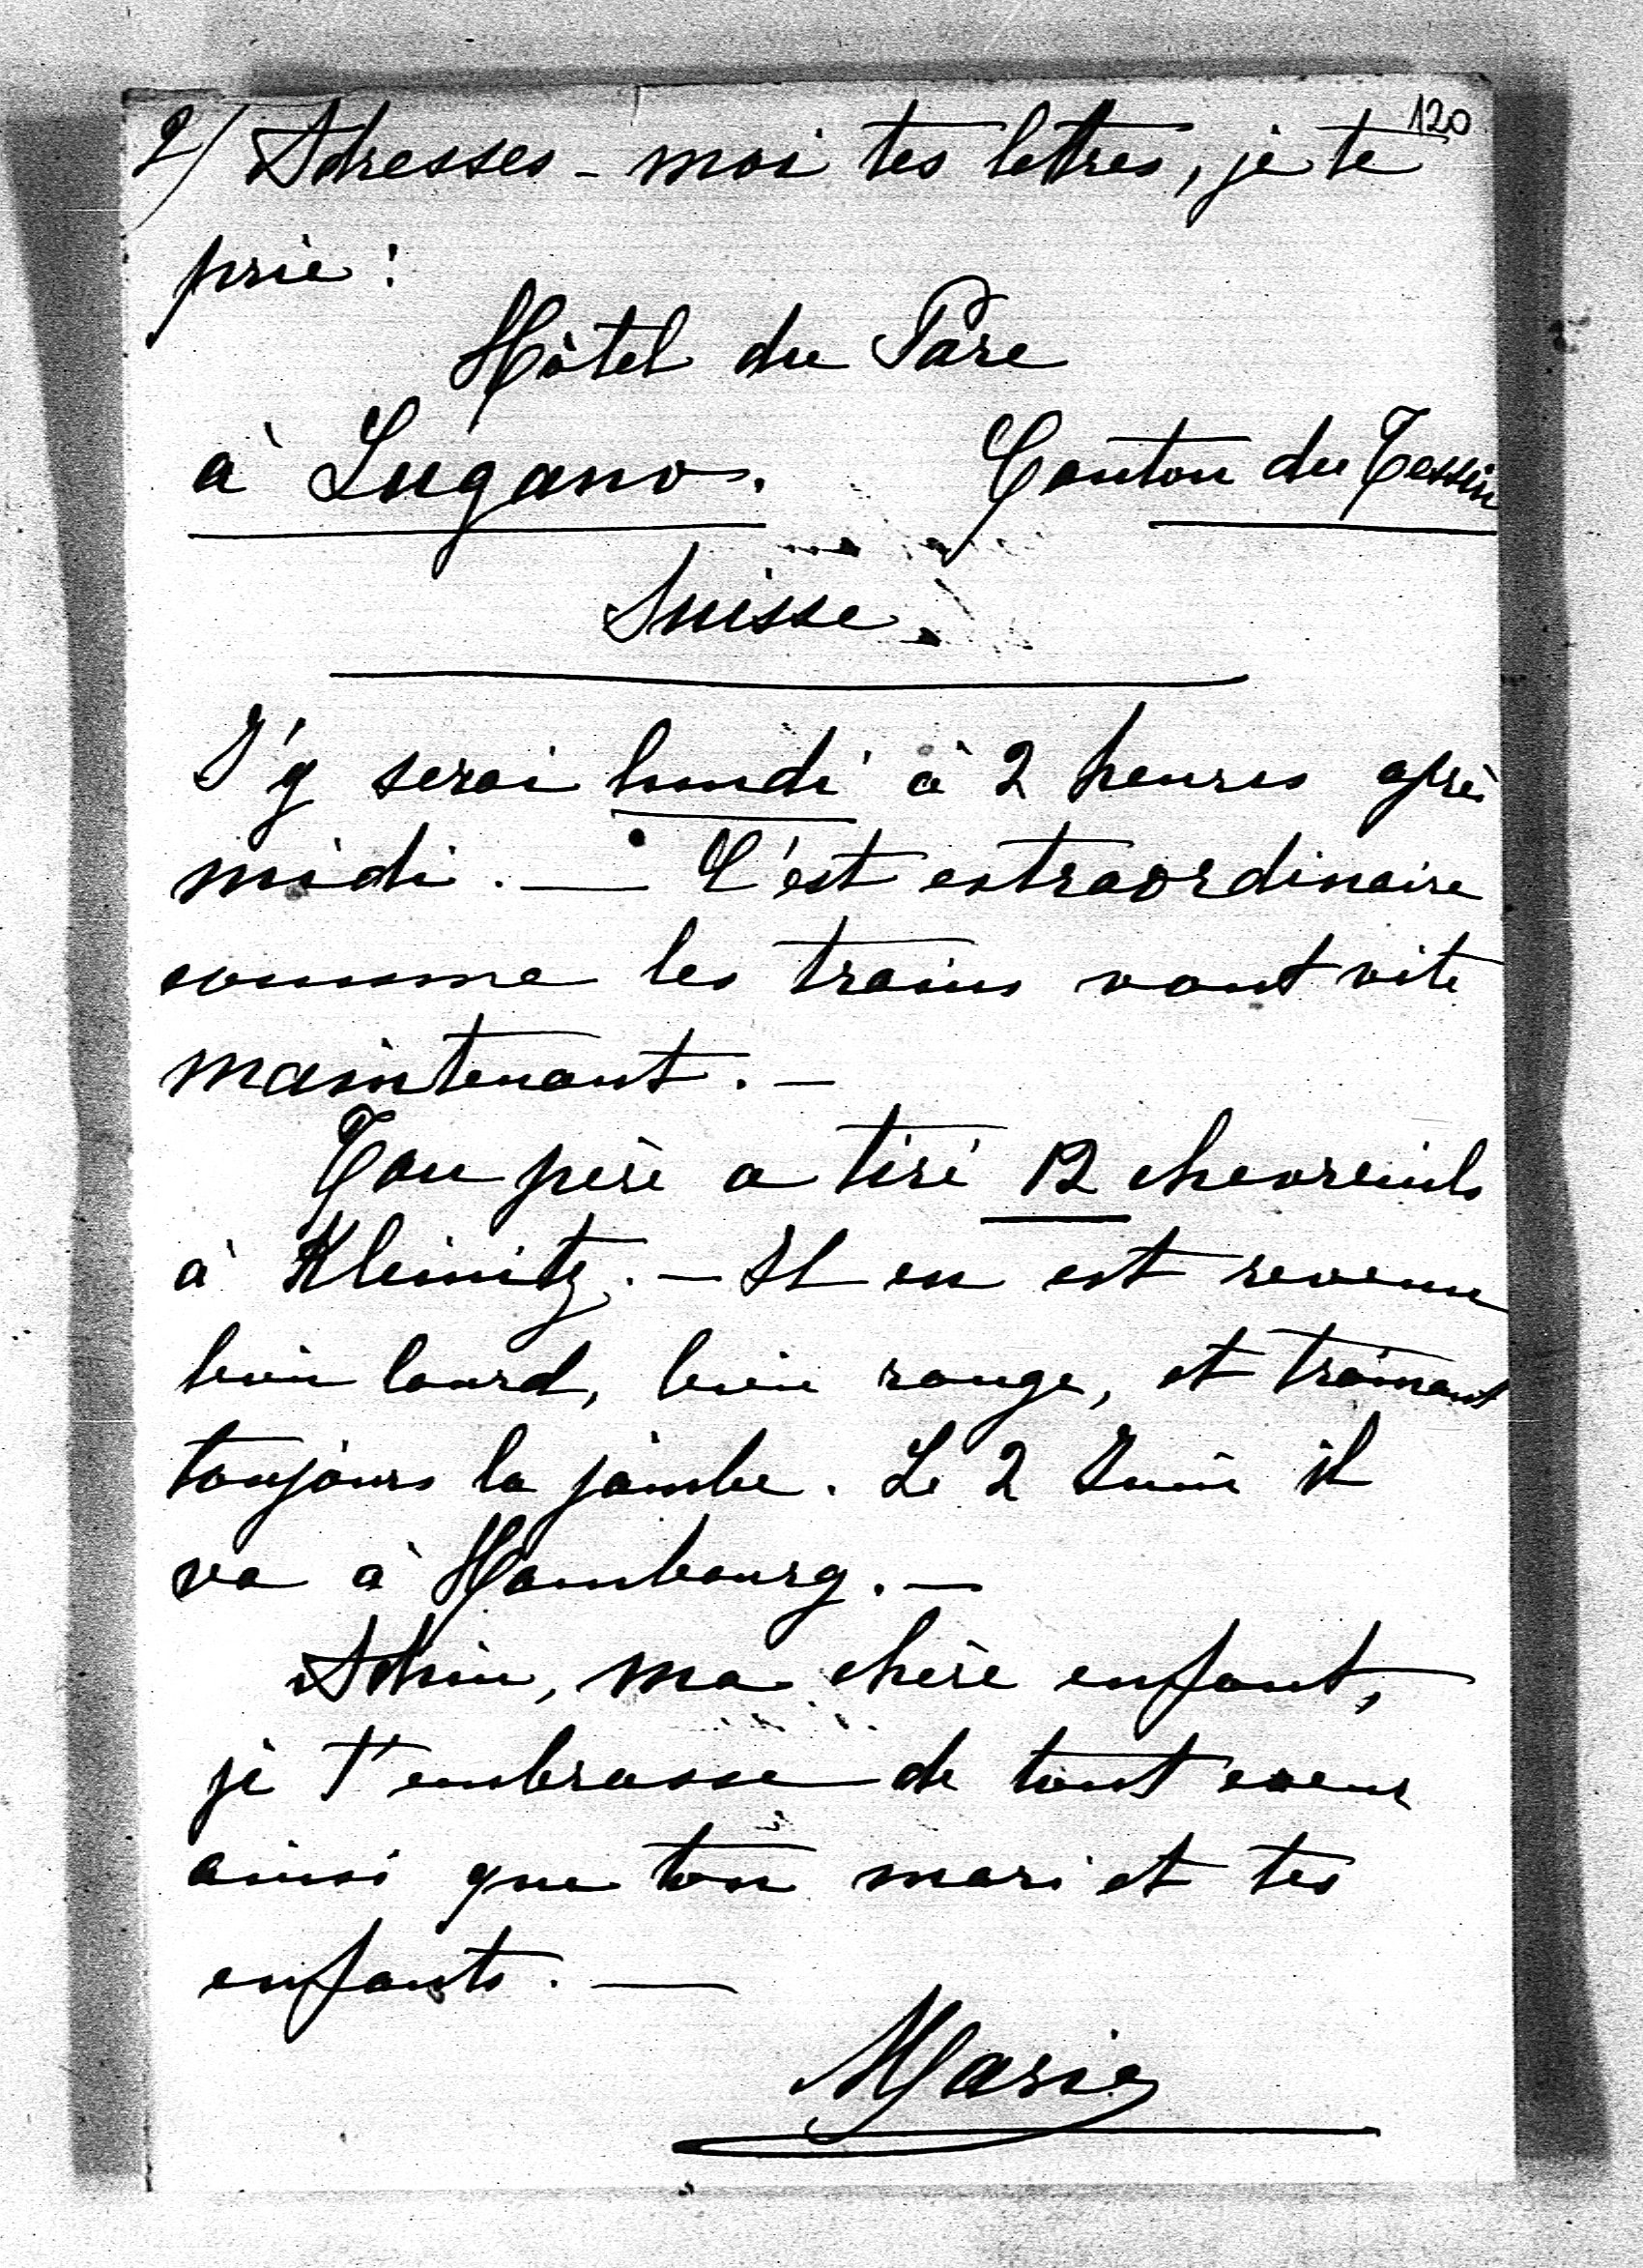 120
2/ Adresses-moi tes lettres, je te
prie:
Hôtel du Parc
à Lugano. Canton du Tessin
Suisse.
J'y serai lundi à 2 heures après
midi. — C'est extraordinaire
comme les trains vont vite
maintenant. —
Ton père a tiré 12 chevreuils
à Kleinitz. — Il en est revenu
bien lourd, bien rouge, et traînant
toujours la jambe. Le 2 Juin il
va à Hambourg. —
Adieu, ma chère enfant,
je t'embrasse de tout coeur
ainsi que ton mari et tes
enfants. —
Marie